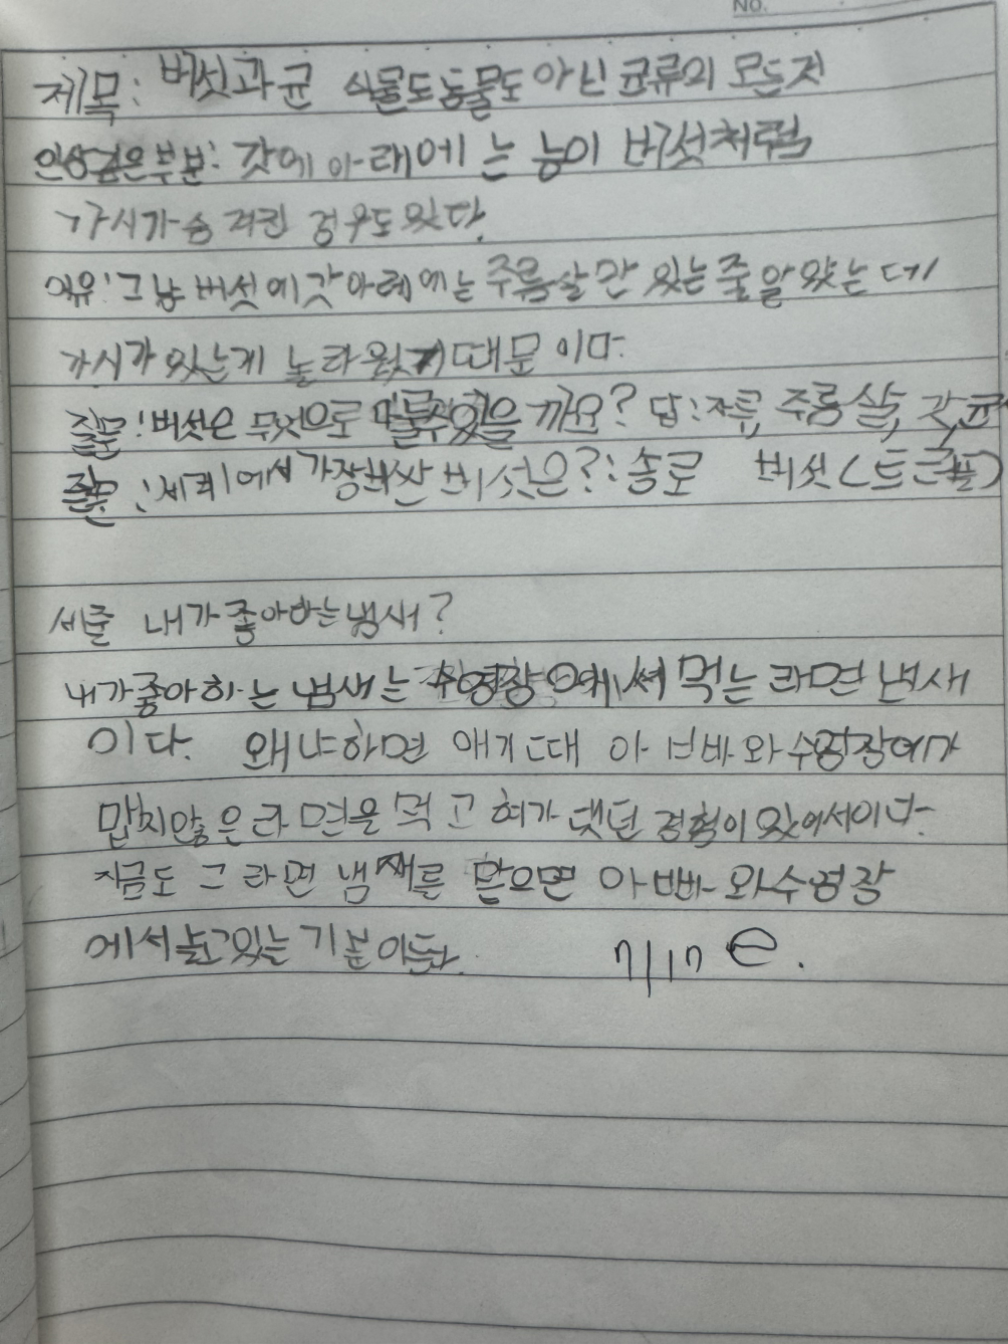 No.
제목: 버섯과 균 식물도 동물도 아닌 균류의 모든것
인상깊은부분: 갓에 아래에 는 능이 버섯처럼
가시가 숭 겨진 경우도 있다.
이유: 그냥 버섯에 갓 아레에는 주름살 만 있는 줄 알았는 데
가시가 있는게 놀라웠기 때문 이다.
질문: 버섯은 무엇으로 만들수있을 까요? 답: 자루, 주름 살, 갓, 균
질문: 세계에서 가장 비싼 버섯은?: 송로 버섯(트러플)
세줄 내가 좋아하는 냄새?
내가 좋아하는 냄새는 수영장 에서 먹는 라면 냄새
이다. 왜냐하면 애기 때 아빠와 수영장에가
맵지않은 라면을 먹고 허가 댓던 경험이 있어서이다.
지금도 그 라면 냄째를 맡으면 아빠와 수영장
에서 놀고있는 기분 이든다.